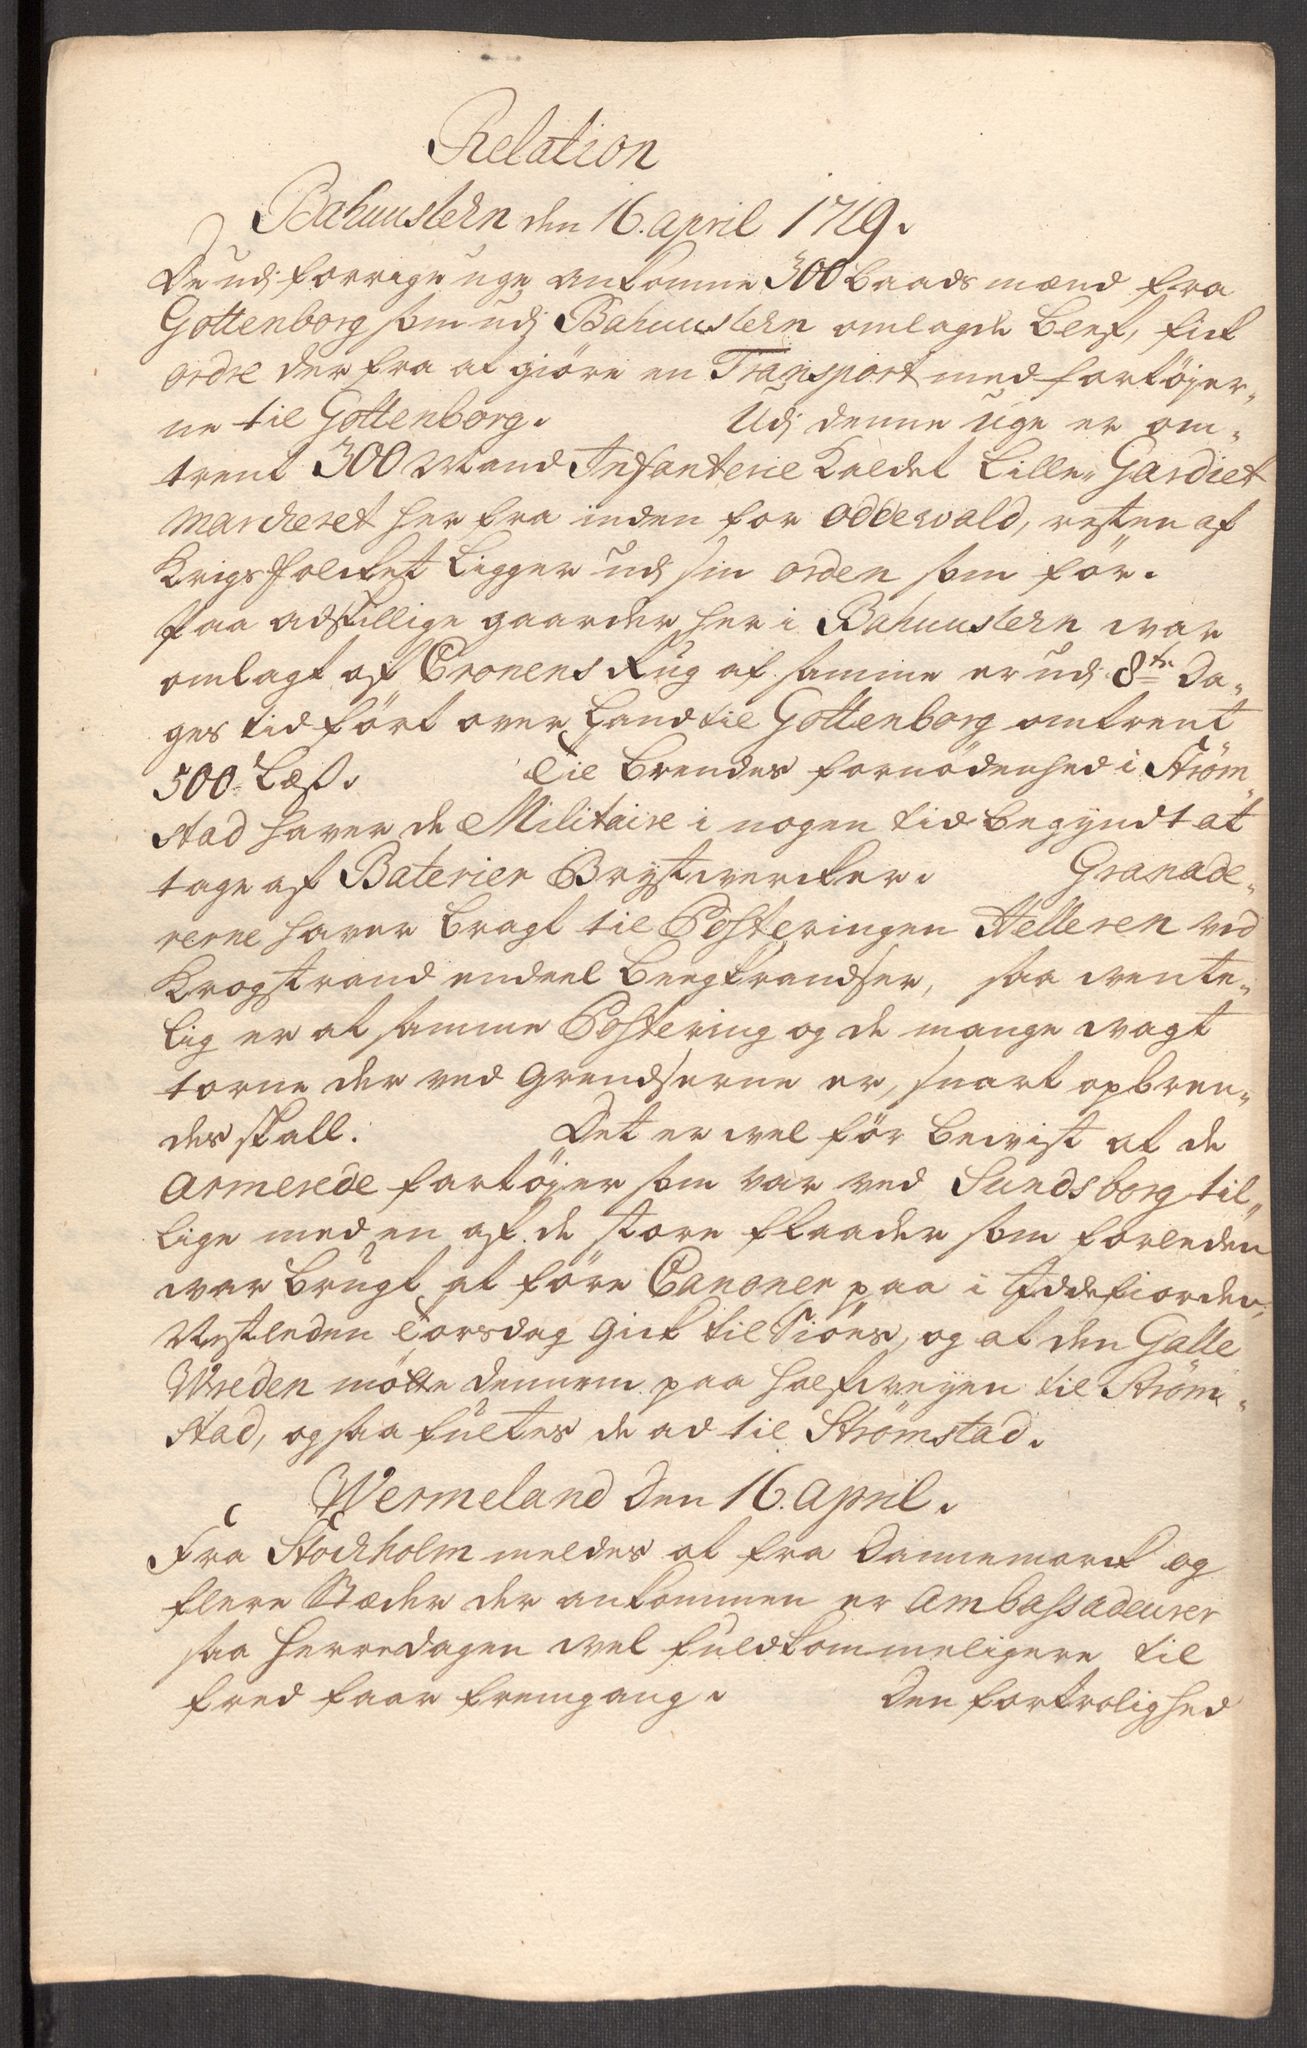 Relation
Bahuuslehn den 16. april 1719.
De udj forrige uge ankomne 300 baadsmænd fra
Gottenborg som udj Bahuuslehn omlagde blef, fick
ordre der fra at giöre en Transport med fartöyer„
ne til Gottenborg. Udj denne uge er om„
trent 300 Mand Infanterie kaldet Lille Gardiet
marcheret her fra inden for Oddewald, resten af
Krigsfolcket ligger udj sin orden som för.
Paa adskillige gaarder her i Bahuuslehn war
omlagt af Cronens Rug af samme er udj 8te Da„
ges tid fört over Land til Gottenborg omtrent
500 Læs. Til brendes fornödenhed i Ström„
stad haver de Militaire i nogen tid begyndt at
tage af Baterier Brystvercker. Granade„
rerne haver bragt til Posteringen Helleren ved
Krogstrand endeel beegkrandser, saa wente„
lig er at samme Postering og de mange vagt
torne der ved grendserne er, snart opbren„
des skall. Det er vel för bevist at de
Armerede fartöyer som var ved Sundsborg til„
lige med en af de store flaader som forleden
war brugt at före Canoner paa i Iddefiorden,
Nestleden Torsdag gick til Siöes, og at den Galle
Wreden mötte dennem paa halfveyen til Ström„
stad, og saa fultes de ad til Strömstad.
Wermeland den 16. april.
Fra Stockholm meldes at fra Dannemarck og
flere Stæder der ankommen er Ambassadeurer
saa herredagen vel fuldkommeligere til
fred faar fremgang. Den fortrolighed